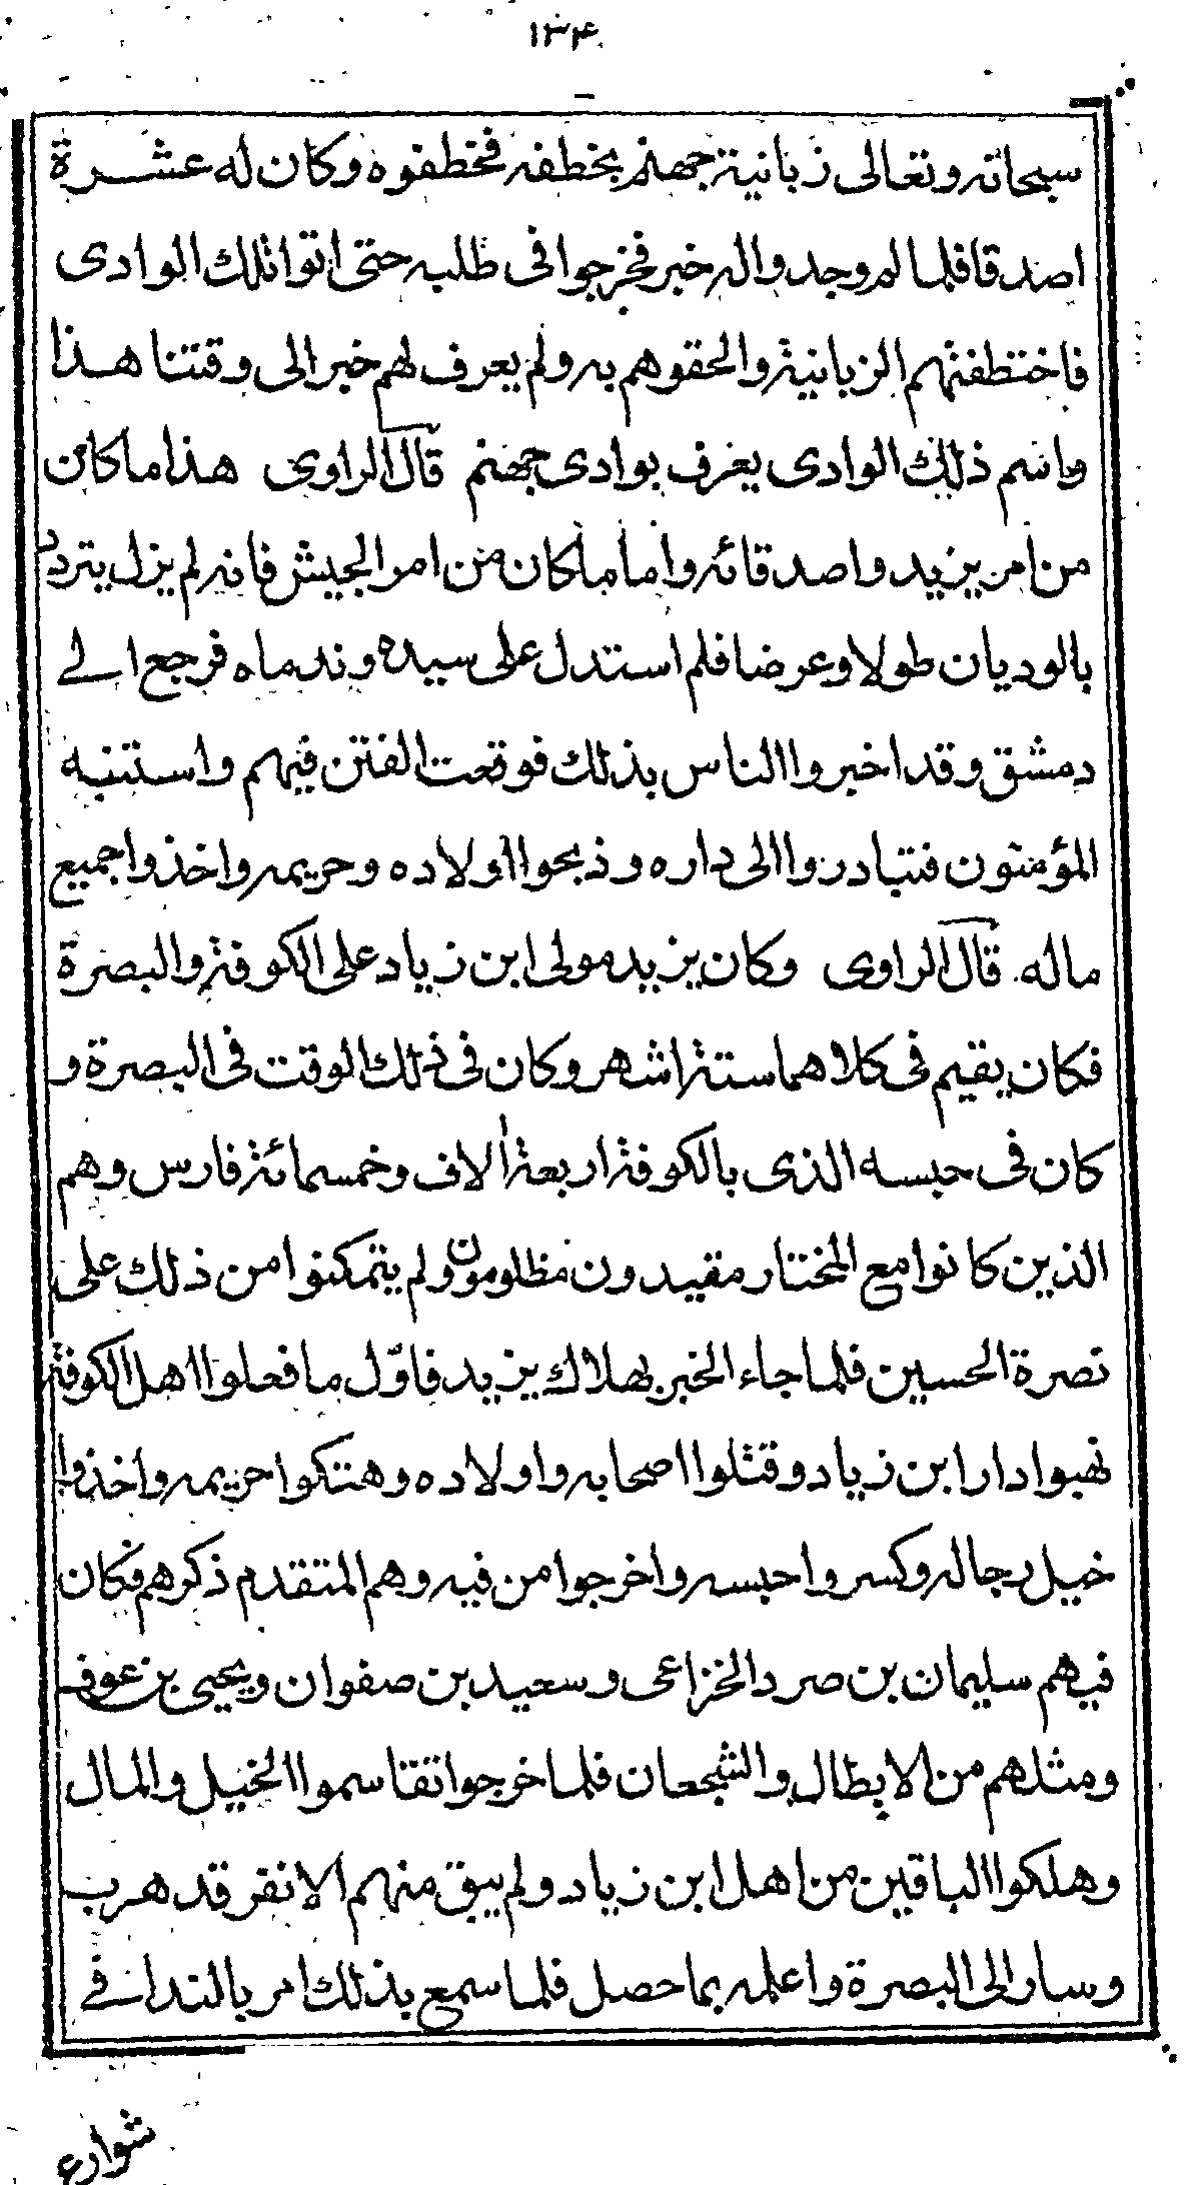 ١٣۴
سبحانه وتعالى زبانية جهنم بخطفه فخطفوه وكان له عشرة
اصدقا فلما لم وجدوا له خبر فخرجوا فى طلبه حتى اتوا تلك الوادى
فاختطفتهم الزبانية والحقوهم به ولم يعرف لهم خبر الى وقتنا هذا
واسم ذلك الوادى يعرف بوادى جهنم قال الراوى هذا ما كان
من امر يزيد واصدقائه واما ما كان من امر الجيش فانه لم يزل يتردد
بالوديان طولا وعرضا فلم استدل على سيده وندماه فرجع الى
دمشق وقد اخبروا الناس بذلك فوقعت الفتن فيهم واستنبه
المؤمنون فتبادروا الى داره وذبحوا اولاده وحريمه واخذوا جميع
ماله قال الراوى وكان يزيد مولى ابن زياد على الكوفة والبصرة
فكان يقيم فى كلاهما ستة اشهر وكان فى ذلك الوقت فى البصرة و
كان فى حبسه الذى بالكوفة اربعة الاف وخمسمائة فارس وهم
الذين كانوا مع المختار مقيدون مظلومون ولم يتمكنوا من ذلك على
نصرة الحسين فلما جاء الخبر بهلاك يزيد فاوّل ما فعلوا اهل الكوفة
نهبوا دار ابن زياد وقتلوا اصحابه واولاده وهتكوا حريمه واخذوا
خيل رجاله وكسروا حبسه واخرجوا من فيه وهم المتقدم ذكرهم فكان
فيهم سليمان بن صرد الخزاعى وسعيد بن صفوان ويحيى بن عوف
ومثلهم من الابطال والشجعان فلما خرجوا تقاسموا الخيل والمال
وهلكوا الباقين من اهل ابن زياد ولم يبق منهم الا نفر قد هرب
وسار الى البصرة واعلمه بما حصل فلما سمع بذلك امر بالندا فى
شوارع